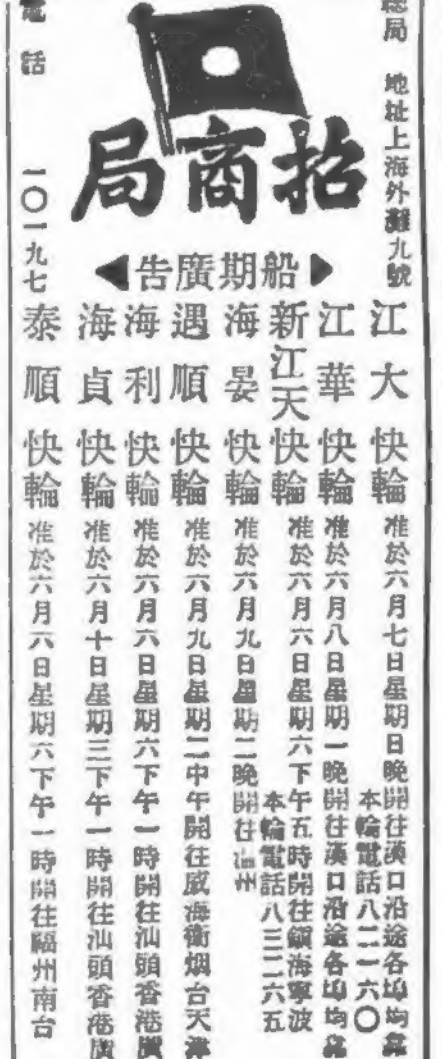 總局　地址上海外灘九號
招商局
電話　一〇一九七
船期廣告
江大快輪准於六月七日星期日晚開往漢口沿途各埠均靠
本輪電話八二一六〇
江華快輪准於六月八日星期一晚開往漢口沿途各埠均靠
新江天快輪准於六月六日星期六下午五時開往鎮海寧波
本輪電話八三二六五
海晏快輪准於六月九日星期二晚開往溫州
遇順快輪准於六月九日星期二中午開往威海衞烟台天津
海利快輪准於六月六日星期六下午一時開往汕頭香港廣
海貞快輪准於六月十日星期三下午一時開往汕頭香港廣
泰順快輪准於六月六日星期六下午一時開往福州南台